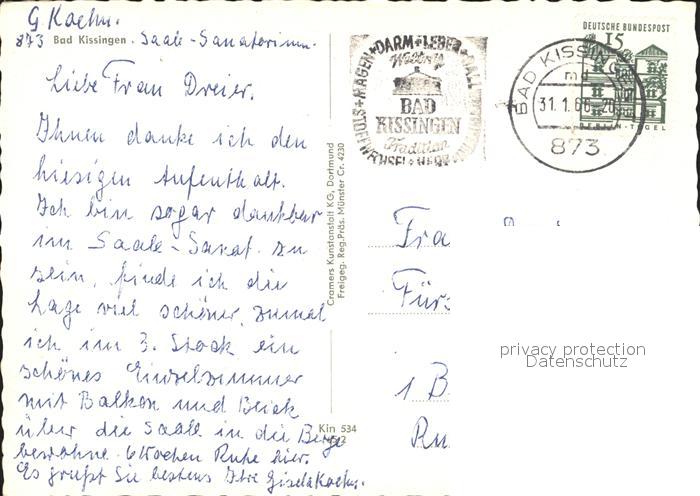 G Kaehn.
873 Bad Kissingen. Saale-Sanatorium.
Liebe Frau Dreier.
Ihnen danke ich den
hiesigen Aufenthalt.
Ich bin sogar dankbar
im Saale-Sanat. zu
sein, finde ich die
Lage viel schöner, zumal
ich im 3. Stock ein
schönes Einzelzimmer
mit Balkon und Blick
über die Saale in die Berge
bewohne. 6 Wochen Ruhe hier.
Es grüßt Sie bestens Ihre Gisela Kaehn.
Cramers Kunstanstalt KG, Dortmund
Freigeg. Reg.Präs. Münster Cr. 4230
Kin 534
MAGEN+DARM+LEBER+GALLE
STOFFWECHSEL+HERZ
Weltruf
BAD
KISSINGEN
Tradition
BAD KISSINGEN
md
31.1.66-20
873
DEUTSCHE BUNDESPOST
15
BERLIN-TEGEL
Fra
Für
1 B
Ru
privacy protection
Datenschutz